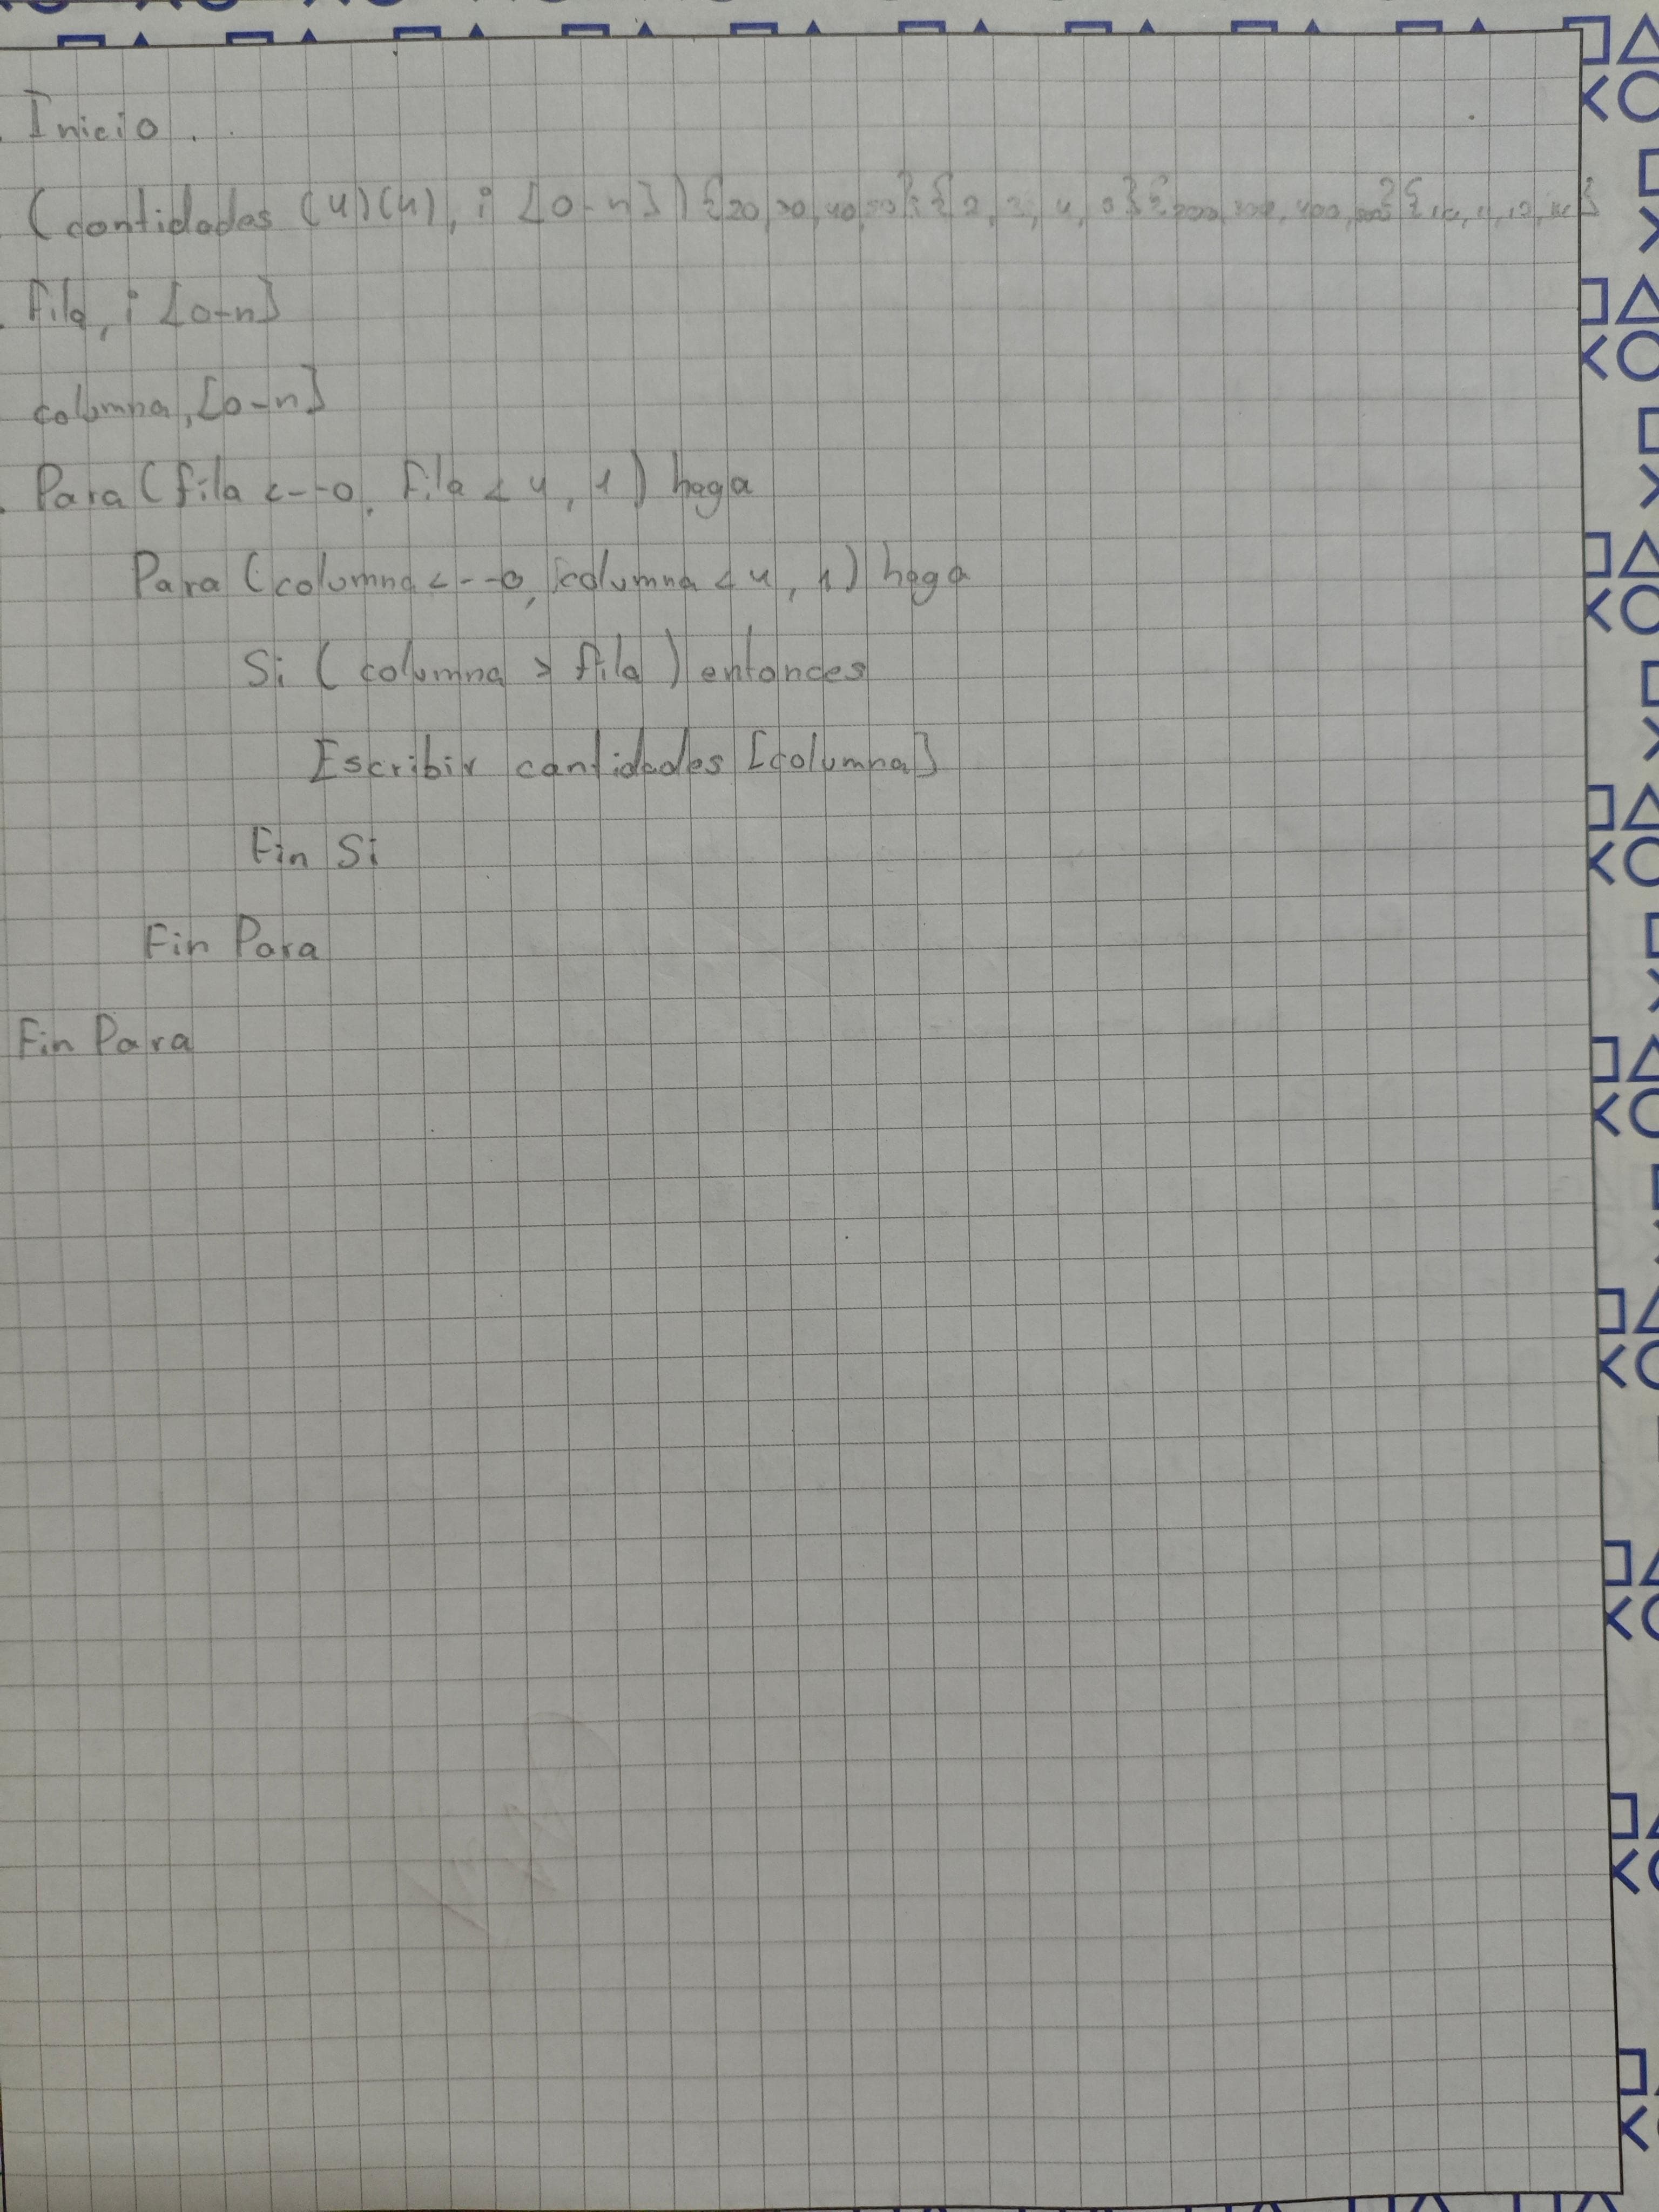 Inicio.
(cantidades (4)(4), i [0-n]) {20, 30, 40, 50} {2, 3, 4, 5} {200, 300, 400, 500} {10, 11, 12,
Fila, i [0-n]
columna, [0-n]
Para (fila <--0, fila < 4, 1) haga
Para (columna <--0, columna < 4, 1) haga
Si (columna > fila) entonces
Escribir cantidades [columna]
Fin Si
Fin Para
Fin Para